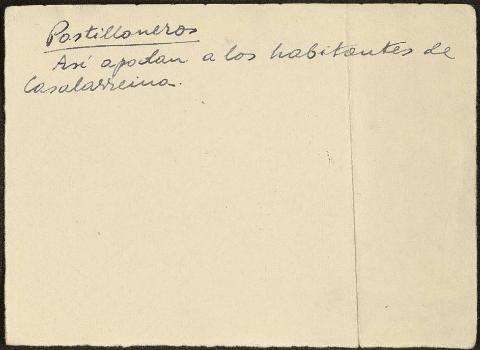 Postilloneros
Así apodan a los habitantes de
Casalarreina.